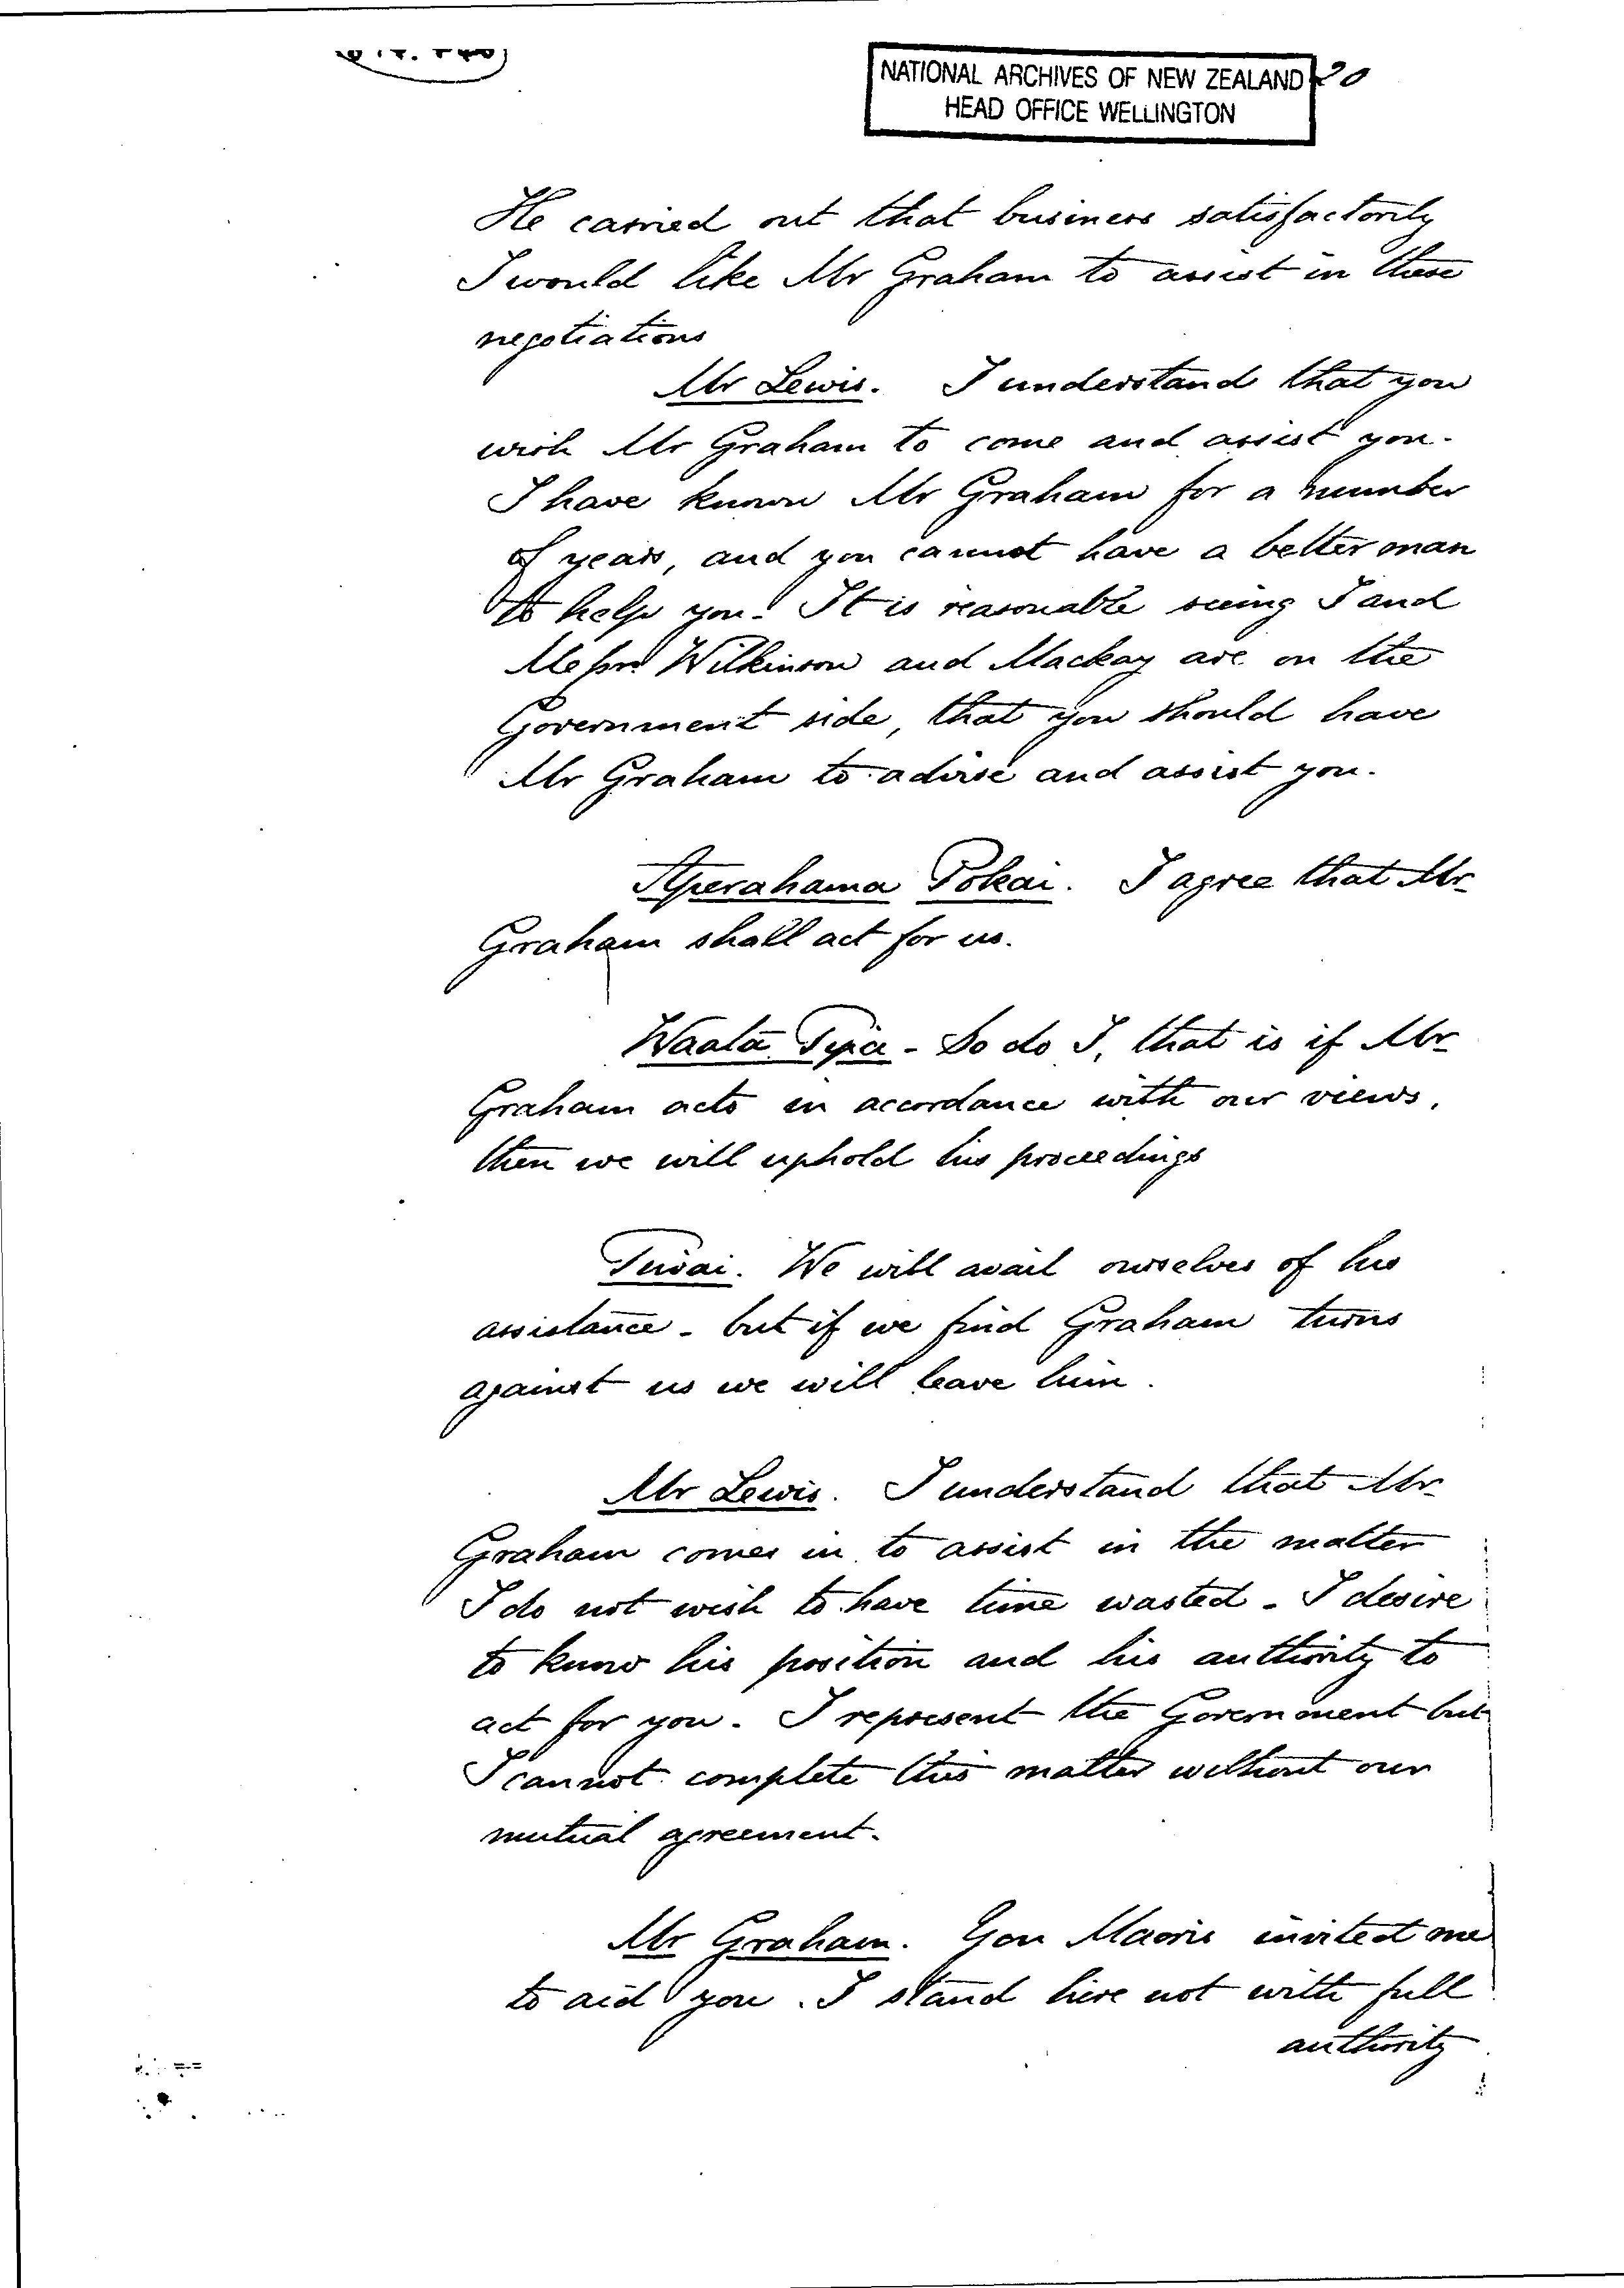 NATIONAL ARCHIVES OF NEW ZEALAND
HEAD OFFICE WELLINGTON
20
He carried out that business satisfactorily
I would like Mr Graham to assist in these
negotiations
Mr Lewis. I understand that you
wish Mr Graham to come and assist you.
I have known Mr Graham for a number
of years, and you cannot have a better man
to help you. It is reasonable seeing I and
Messrs Wilkinson and Mackay are on the
Government side, that you should have
Mr Graham to advise and assist you.
Aperahama Pokai. I agree that Mr
Graham shall act for us.
Waata Tipa - So do I, that is if Mr
Graham acts in accordance with our views,
then we will uphold his proceedings
We will avail ourselves of his
assistance - but if we find Graham turns
against us we will leave him.
Mr Lewis. I understand that Mr
Graham comes in to assist in the matter
I do not wish to have time wasted - I desire
to know his position and his authority to
act for you. I represent the Government but
I cannot complete this matter without our
mutual agreement.
Mr Graham. You Maoris invited me
to aid you. I stand here not with full
authority